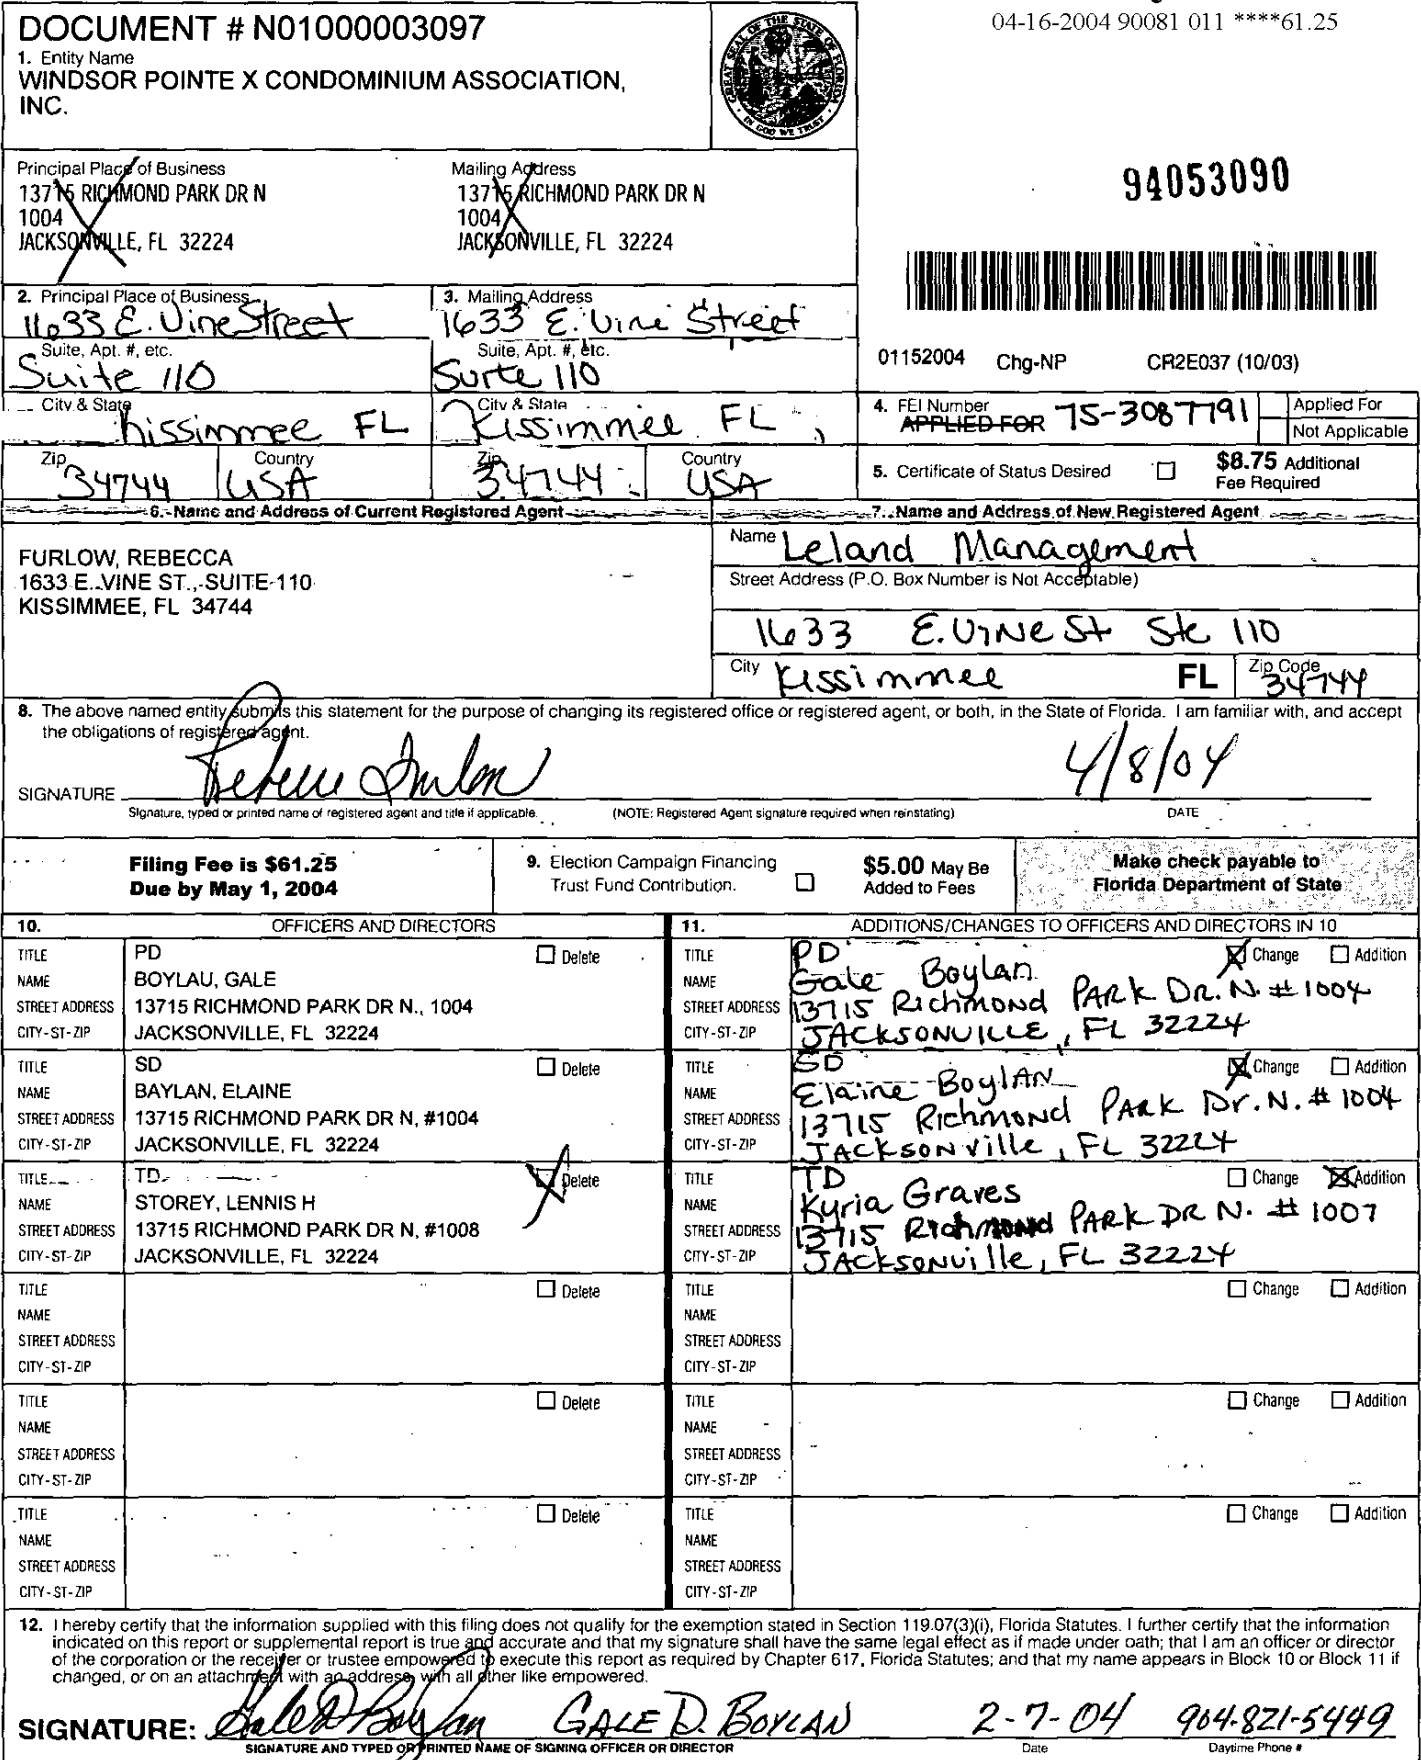 04-16-2004 90081 011 ****61.25
DOCUMENT # N01000003097
1. Entity Name
WINDSOR POINTE X CONDOMINIUM ASSOCIATION,
INC.
GREAT SEAL OF THE STATE OF FLORIDA
IN GOD WE TRUST
Principal Place of Business
13715 RICHMOND PARK DR N
1004
JACKSONVILLE, FL 32224
Mailing Address
13715 RICHMOND PARK DR N
1004
JACKSONVILLE, FL 32224
94053090
2. Principal Place of Business
1633 E. Vine Street
Suite, Apt. #, etc.
Suite 110
City & State
Kissimmee FL
Zip
34744
Country
USA
3. Mailing Address
1633 E. Vine Street
Suite, Apt. #, etc.
Suite 110
City & State
Kissimmee FL
Zip
34744
Country
USA
01152004 Chg-NP CR2E037 (10/03)
4. FEI Number
APPLIED FOR 75-3087791
Applied For
Not Applicable
5. Certificate of Status Desired ☐ $8.75 Additional
Fee Required
6. Name and Address of Current Registered Agent
FURLOW, REBECCA
1633 E. VINE ST., SUITE 110
KISSIMMEE, FL 34744
7. Name and Address of New Registered Agent
Name Leland Management
Street Address (P.O. Box Number is Not Acceptable)
1633 E. Vine St Ste 110
City Kissimmee FL Zip Code 34744
8. The above named entity submits this statement for the purpose of changing its registered office or registered agent, or both, in the State of Florida. I am familiar with, and accept
the obligations of registered agent.
SIGNATURE Rebecca Furlow 4/8/04
Signature, typed or printed name of registered agent and title if applicable. (NOTE: Registered Agent signature required when reinstating) DATE
Filing Fee is $61.25
Due by May 1, 2004
9. Election Campaign Financing
Trust Fund Contribution. ☐
$5.00 May Be
Added to Fees
Make check payable to
Florida Department of State
10. OFFICERS AND DIRECTORS
TITLE PD ☐ Delete
NAME BOYLAU, GALE
STREET ADDRESS 13715 RICHMOND PARK DR N., 1004
CITY-ST-ZIP JACKSONVILLE, FL 32224
TITLE SD ☐ Delete
NAME BAYLAN, ELAINE
STREET ADDRESS 13715 RICHMOND PARK DR N, #1004
CITY-ST-ZIP JACKSONVILLE, FL 32224
TITLE TD ☒ Delete
NAME STOREY, LENNIS H
STREET ADDRESS 13715 RICHMOND PARK DR N, #1008
CITY-ST-ZIP JACKSONVILLE, FL 32224
TITLE ☐ Delete
NAME
STREET ADDRESS
CITY-ST-ZIP
TITLE ☐ Delete
NAME
STREET ADDRESS
CITY-ST-ZIP
TITLE ☐ Delete
NAME
STREET ADDRESS
CITY-ST-ZIP
11. ADDITIONS/CHANGES TO OFFICERS AND DIRECTORS IN 10
TITLE PD ☒ Change ☐ Addition
NAME Gale Boylan
STREET ADDRESS 13715 Richmond PARK DR. N. #1004
CITY-ST-ZIP JACKSONVILLE, FL 32224
TITLE SD ☒ Change ☐ Addition
NAME Elaine BoylAN
STREET ADDRESS 13715 Richmond PARK Dr. N. #1004
CITY-ST-ZIP JACKSONville, FL 32224
TITLE TD ☐ Change ☒ Addition
NAME Kyria Graves
STREET ADDRESS 13715 Richmond PARK DR N. #1007
CITY-ST-ZIP JACKSONville, FL 32224
TITLE ☐ Change ☐ Addition
NAME
STREET ADDRESS
CITY-ST-ZIP
TITLE ☐ Change ☐ Addition
NAME
STREET ADDRESS
CITY-ST-ZIP
TITLE ☐ Change ☐ Addition
NAME
STREET ADDRESS
CITY-ST-ZIP
12. I hereby certify that the information supplied with this filing does not qualify for the exemption stated in Section 119.07(3)(i), Florida Statutes. I further certify that the information
indicated on this report or supplemental report is true and accurate and that my signature shall have the same legal effect as if made under oath; that I am an officer or director
of the corporation or the receiver or trustee empowered to execute this report as required by Chapter 617, Florida Statutes; and that my name appears in Block 10 or Block 11 if
changed, or on an attachment with an address, with all other like empowered.
SIGNATURE: Gale D Boylan GALE D. BOYLAN 2-7-04 904-821-5449
SIGNATURE AND TYPED OR PRINTED NAME OF SIGNING OFFICER OR DIRECTOR Date Daytime Phone #